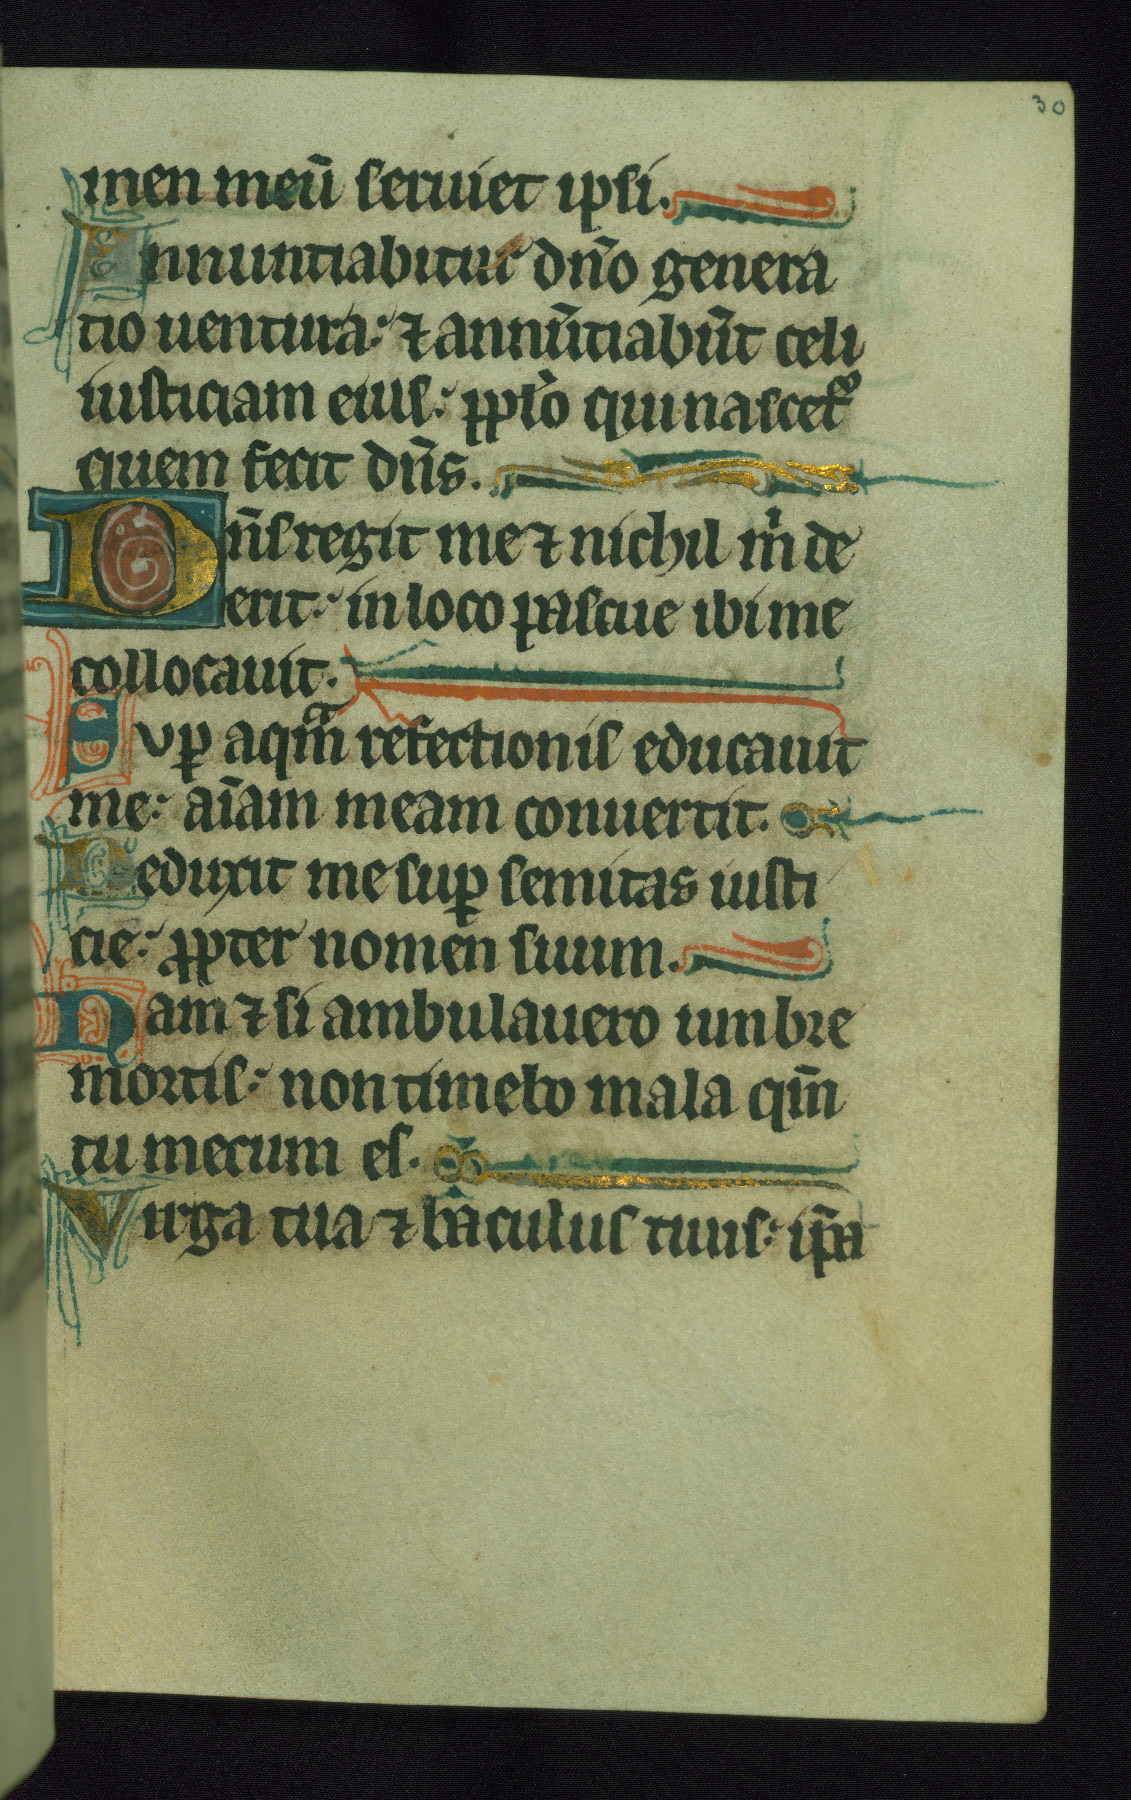 30
men meū seruiet ipsi.
Annuntiabitur dn̄o genera
tio uentura: ⁊ annūtiabūt celi
iusticiam eius: pp̄lo qui nascet᷑
quem fecit dn̄s.
Dn̄s regit me ⁊ nichil m̄ de
erit: in loco pascue ibi me
collocauit.
Sup̄ aqͣm refectionis educauit
me: aīam meam conuertit.
Deduxit me sup̄ semitas iusti
cie: ꝓpter nomen suum.
Nam ⁊ si ambulauero in unbre
mortis: non timebo mala qm̄
tu mecum es.
Virga tua ⁊ baculus tuus: ip̄a